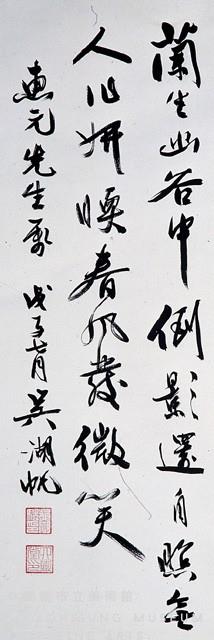 蘭生幽谷中倒影還自照無
人作妍暖春風發微笑
惠元先生 戊子月吳湖帆
市立美術館
MUSEUM